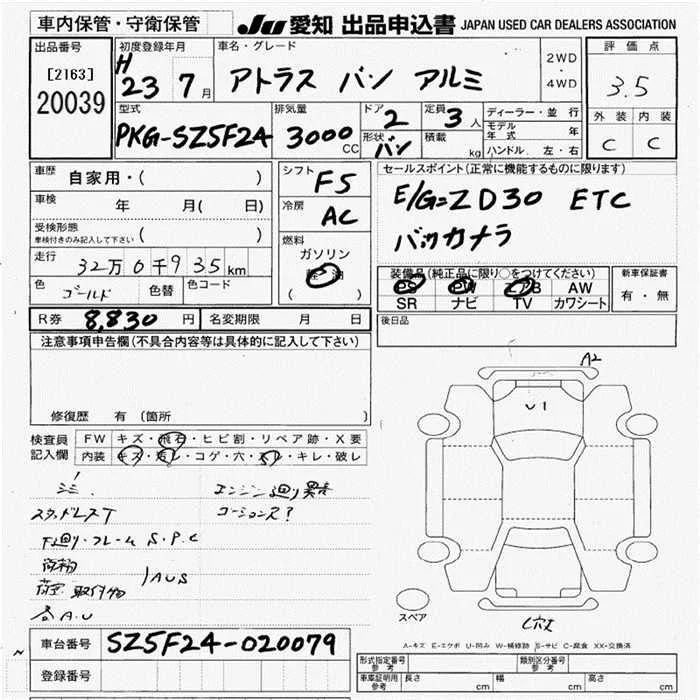 車内保管・守衛保管
JU 愛知 出品申込書 JAPAN USED CAR DEALERS ASSOCIATION
出品番号
[2163]
20039
初度登録年月
H 23 7月
車名・グレード
アトラス バン アルミ
2WD
・
4WD
評価点
3.5
外装 内装
C C
型式
PKG-SZ5F24
排気量
3000 CC
ドア
2
形状
バン
定員
3人
積載
kg
ディーラー・並行
モデル年式 年
ハンドル 左・右
車歴
自家用・( )
車検 年 月( 日)
受検形態
車検付きのみ記入して下さい ( )
走行
32万0千935km
色
ゴールド
色替
色コード
シフト
F5
冷房
AC
燃料
ガソリン
軽油
( )
セールスポイント(正常に機能するものに限ります)
E/G=ZD30 ETC
バックカメラ
装備品(純正品に限り○をつけてください)
PS PW エアB AW
SR ナビ TV カワシート
新車保証書
有・無
R券 8,830円
名変期限 月 日
後日品
注意事項申告欄(不具合内容等は具体的に記入して下さい)
修復歴 有(箇所 )
検査員
記入欄
FW キズ・飛石・ヒビ割・リペア跡・X要
内装 キズ・汚レ・コゲ・穴・スレ・キレ・破レ
エンジン廻り異音
下廻り・フレーム S.P.C
取付物
AUS
各A.U
A2
U1
スペア
A-キズ E-エクボ U-凹み W-補修跡 S-サビ C-腐食 XX-交換済
車台番号 SZ5F24-020079
登録番号
形式指定番号
参考
類別区分番号
参考
車庫証明用
参考
長さ cm
幅 cm
高さ cm